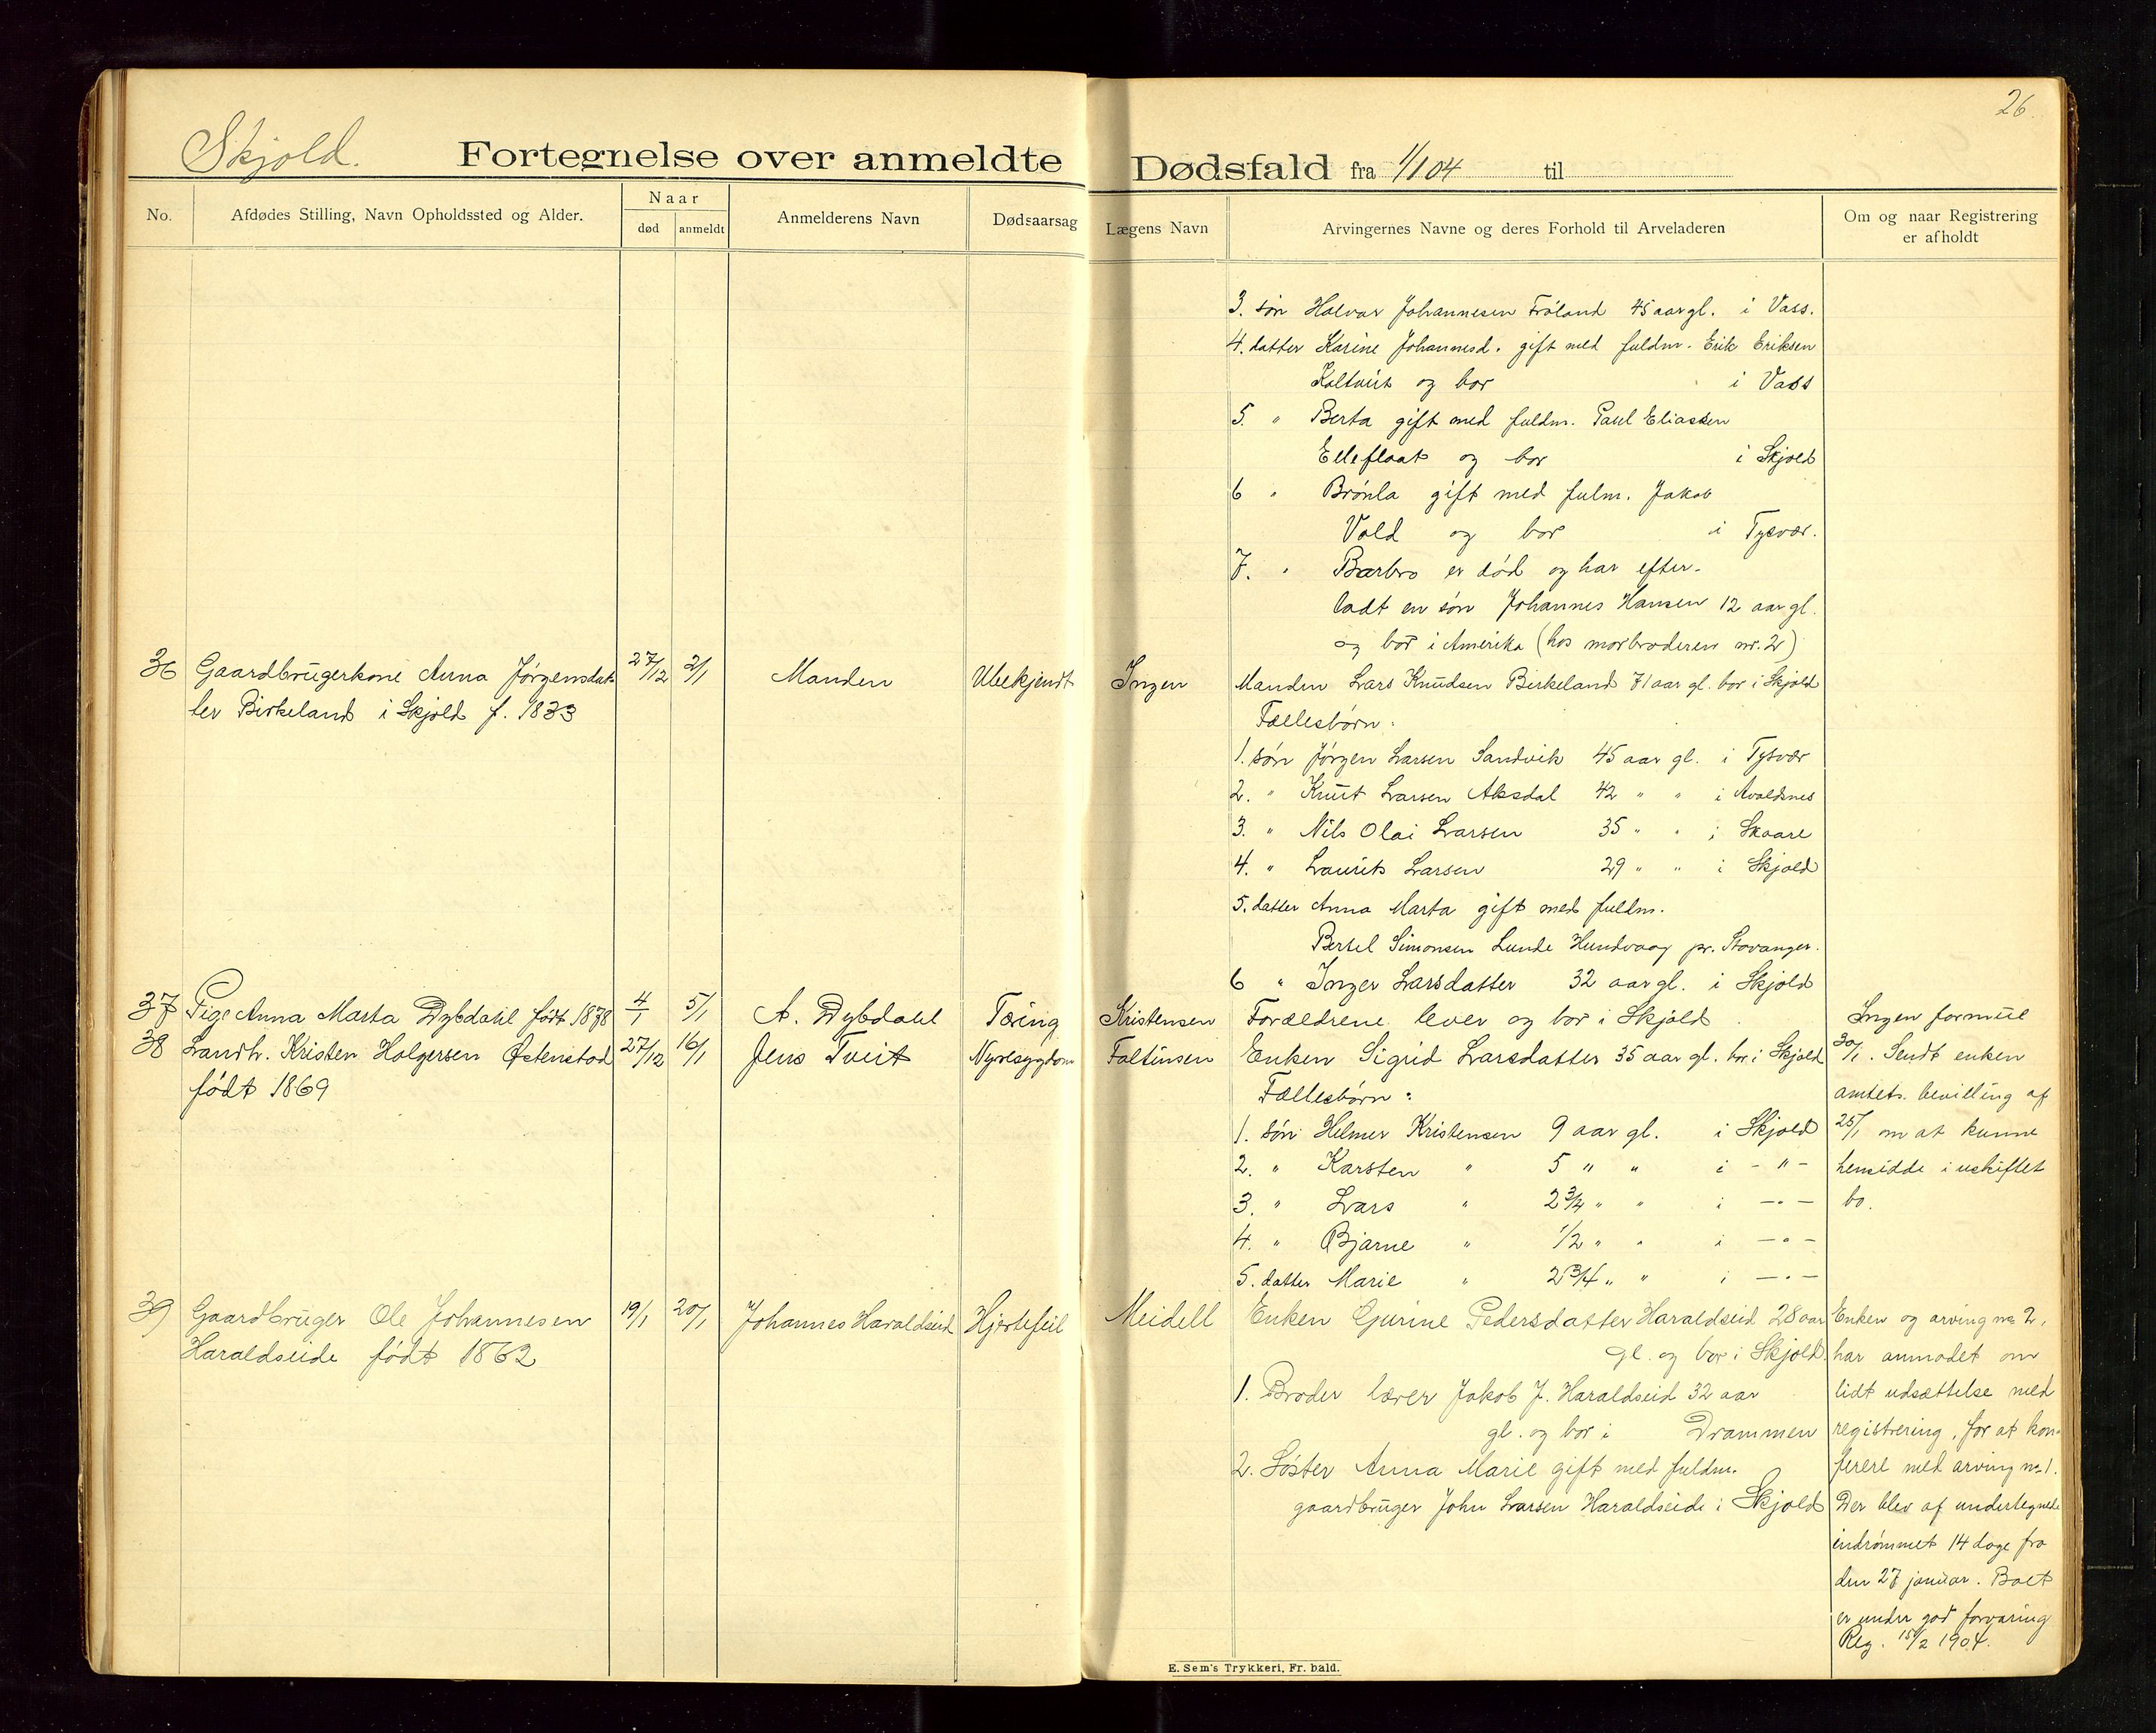 26.
Skjold. Fortegnelse over anmeldte Dødsfald fra 1/1 04 til
No.
Afdødes Stilling, Navn Opholdssted og Alder.
Naar
død
anmeldt
Anmelderens Navn
Dødsaarsag
Lægens Navn
Arvingernes Navne og deres Forhold til Arveladeren
Om og naar Registrering
er afholdt
3. søn Halvar Johannesen Frøland 45 aar gl. i Vass.
4. datter Karine Johannesd. gift med fuldm. Erik Eriksen
Koltveit og bor i Vass
5. " Berta gift med fuldm. Paul Eliassen
Elleflaat og bor i Skjold
6 " Brønla gift med fulm. Jakob
Vold og bor i Tysvær.
7. " Barbro er død og har efter-
ladt en søn Johannes Hansen 12 aar gl.
og bor i Amerika (hos morbroderen nr. 2)
36 Gaardbrugerkone Anna Jørgensdat 27/12 2/1 Manden Ubekjendt Ingen Manden Lars Knudsen Birkeland 71 aar gl. bor i Skjold
ter Birkeland i Skjold f. 1833
Fællesbørn:
1. søn Jørgen Larsen Sandvik 45 aar gl. i Tysvær
2. " Knut Larsen Aksdal 42 " " i Avaldsnes
3. " Nils Olai Larsen 35 " " i Skaare
4. " Laurits Larsen 29 " " i Skjold
5. datter Anna Marta gift med fuldm.
Bertel Simonsen Lunde Hundvaag pr. Stavanger.
6 " Inger Larsdatter 32 aar gl. i Skjold
37 Pige Anna Marta Dybdahl født 1878 4/1 5/1 A. Dybdahl Tæring Kristensen Forældrene lever og bor i Skjold. Ingen formue
38 Landh. Kristen Holgersen Østenstad 27/12 16/1 Jens Tveit Nyresygdom Faltinsen Enken Sigrid Larsdatter 35 aar gl. bor i Skjold 30/1. Sendt enken
født 1869 Fællesbørn: amtets bevilling af
1. søn Helmer Kristensen 9 aar gl. i Skjold 25/1 om at kunne
2. " Karsten " 5 " " i - " - hensidde i uskiftet
3. " Lars " 2 3/4 " " i - " - bo.
4. " Bjarne " 1/2 " " i - " -
5. datter Marie " 2 3/4 " " i - " -
39 Gaardbruger Ole Johannesen 19/1 20/1 Johannes Haraldseid Hjertefeil Meidell Enken Gurine Pedersdatter Haraldseid 28 aar Enken og arving no 2,
Haraldseide født 1862 gl. og bor i Skjold. har anmodet om
1. Broder lærer Jakob J. Haraldseid 32 aar lidt udsættelse med
gl. og bor i Drammen registrering, for at kon-
2. Søster Anna Marie gift med fuldm. ferere med arving no 1.
gaardbruger John Larsen Haraldseide i Skjold Der blev af undertegnede
indrømmet 14 dage fra
den 27 januar. Boet
er under god forvaring
Reg. 15/2 1904.
E. Sem's Trykkeri, Fr. hald.